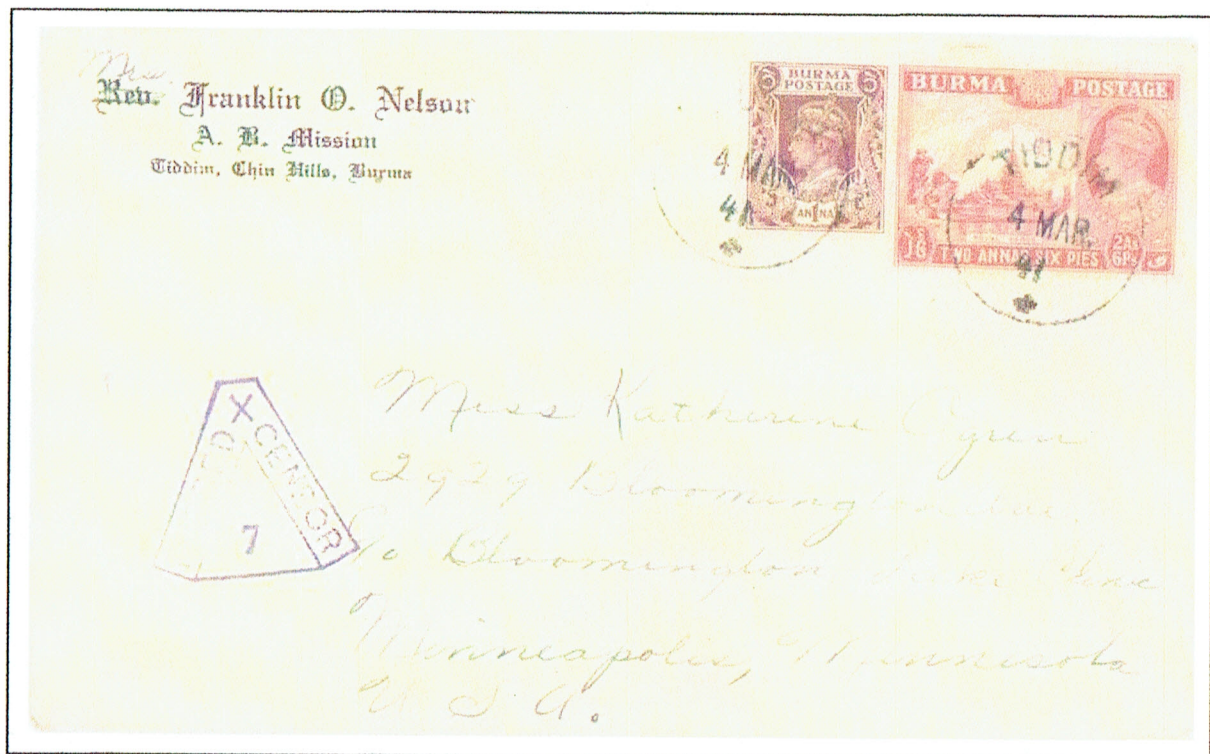 Mrs.
Rev. Franklin O. Nelson
A. B. Mission
Tiddim, Chin Hills, Burma
BURMA
POSTAGE
ANNA
BURMA POSTAGE
TWO ANNAS SIX PIES
2AS
6PS
4 MAR
41
TIDDIM
4 MAR.
41
X
CENSOR
7
Miss Katherine
2929 Bloomington Ave.
Bloomington
Minneapolis, Minnesota
U. S. A.